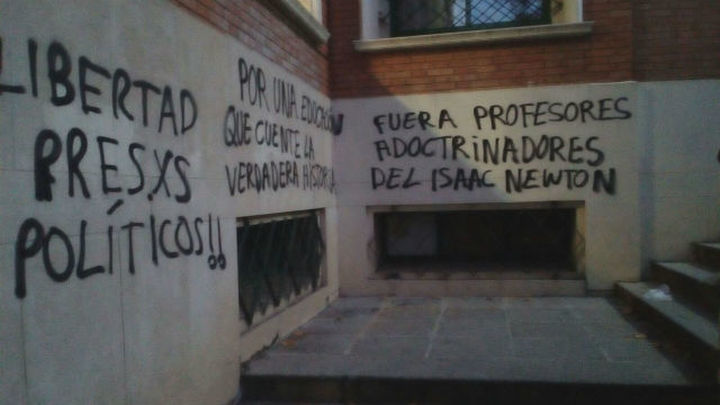 LIBERTAD
PRESXS
POLÍTICOS!!
POR UNA EDUCACIÓN
QUE CUENTE LA
VERDADERA HISTORIA
FUERA PROFESORES
ADOCTRINADORES
DEL ISAAC NEWTON